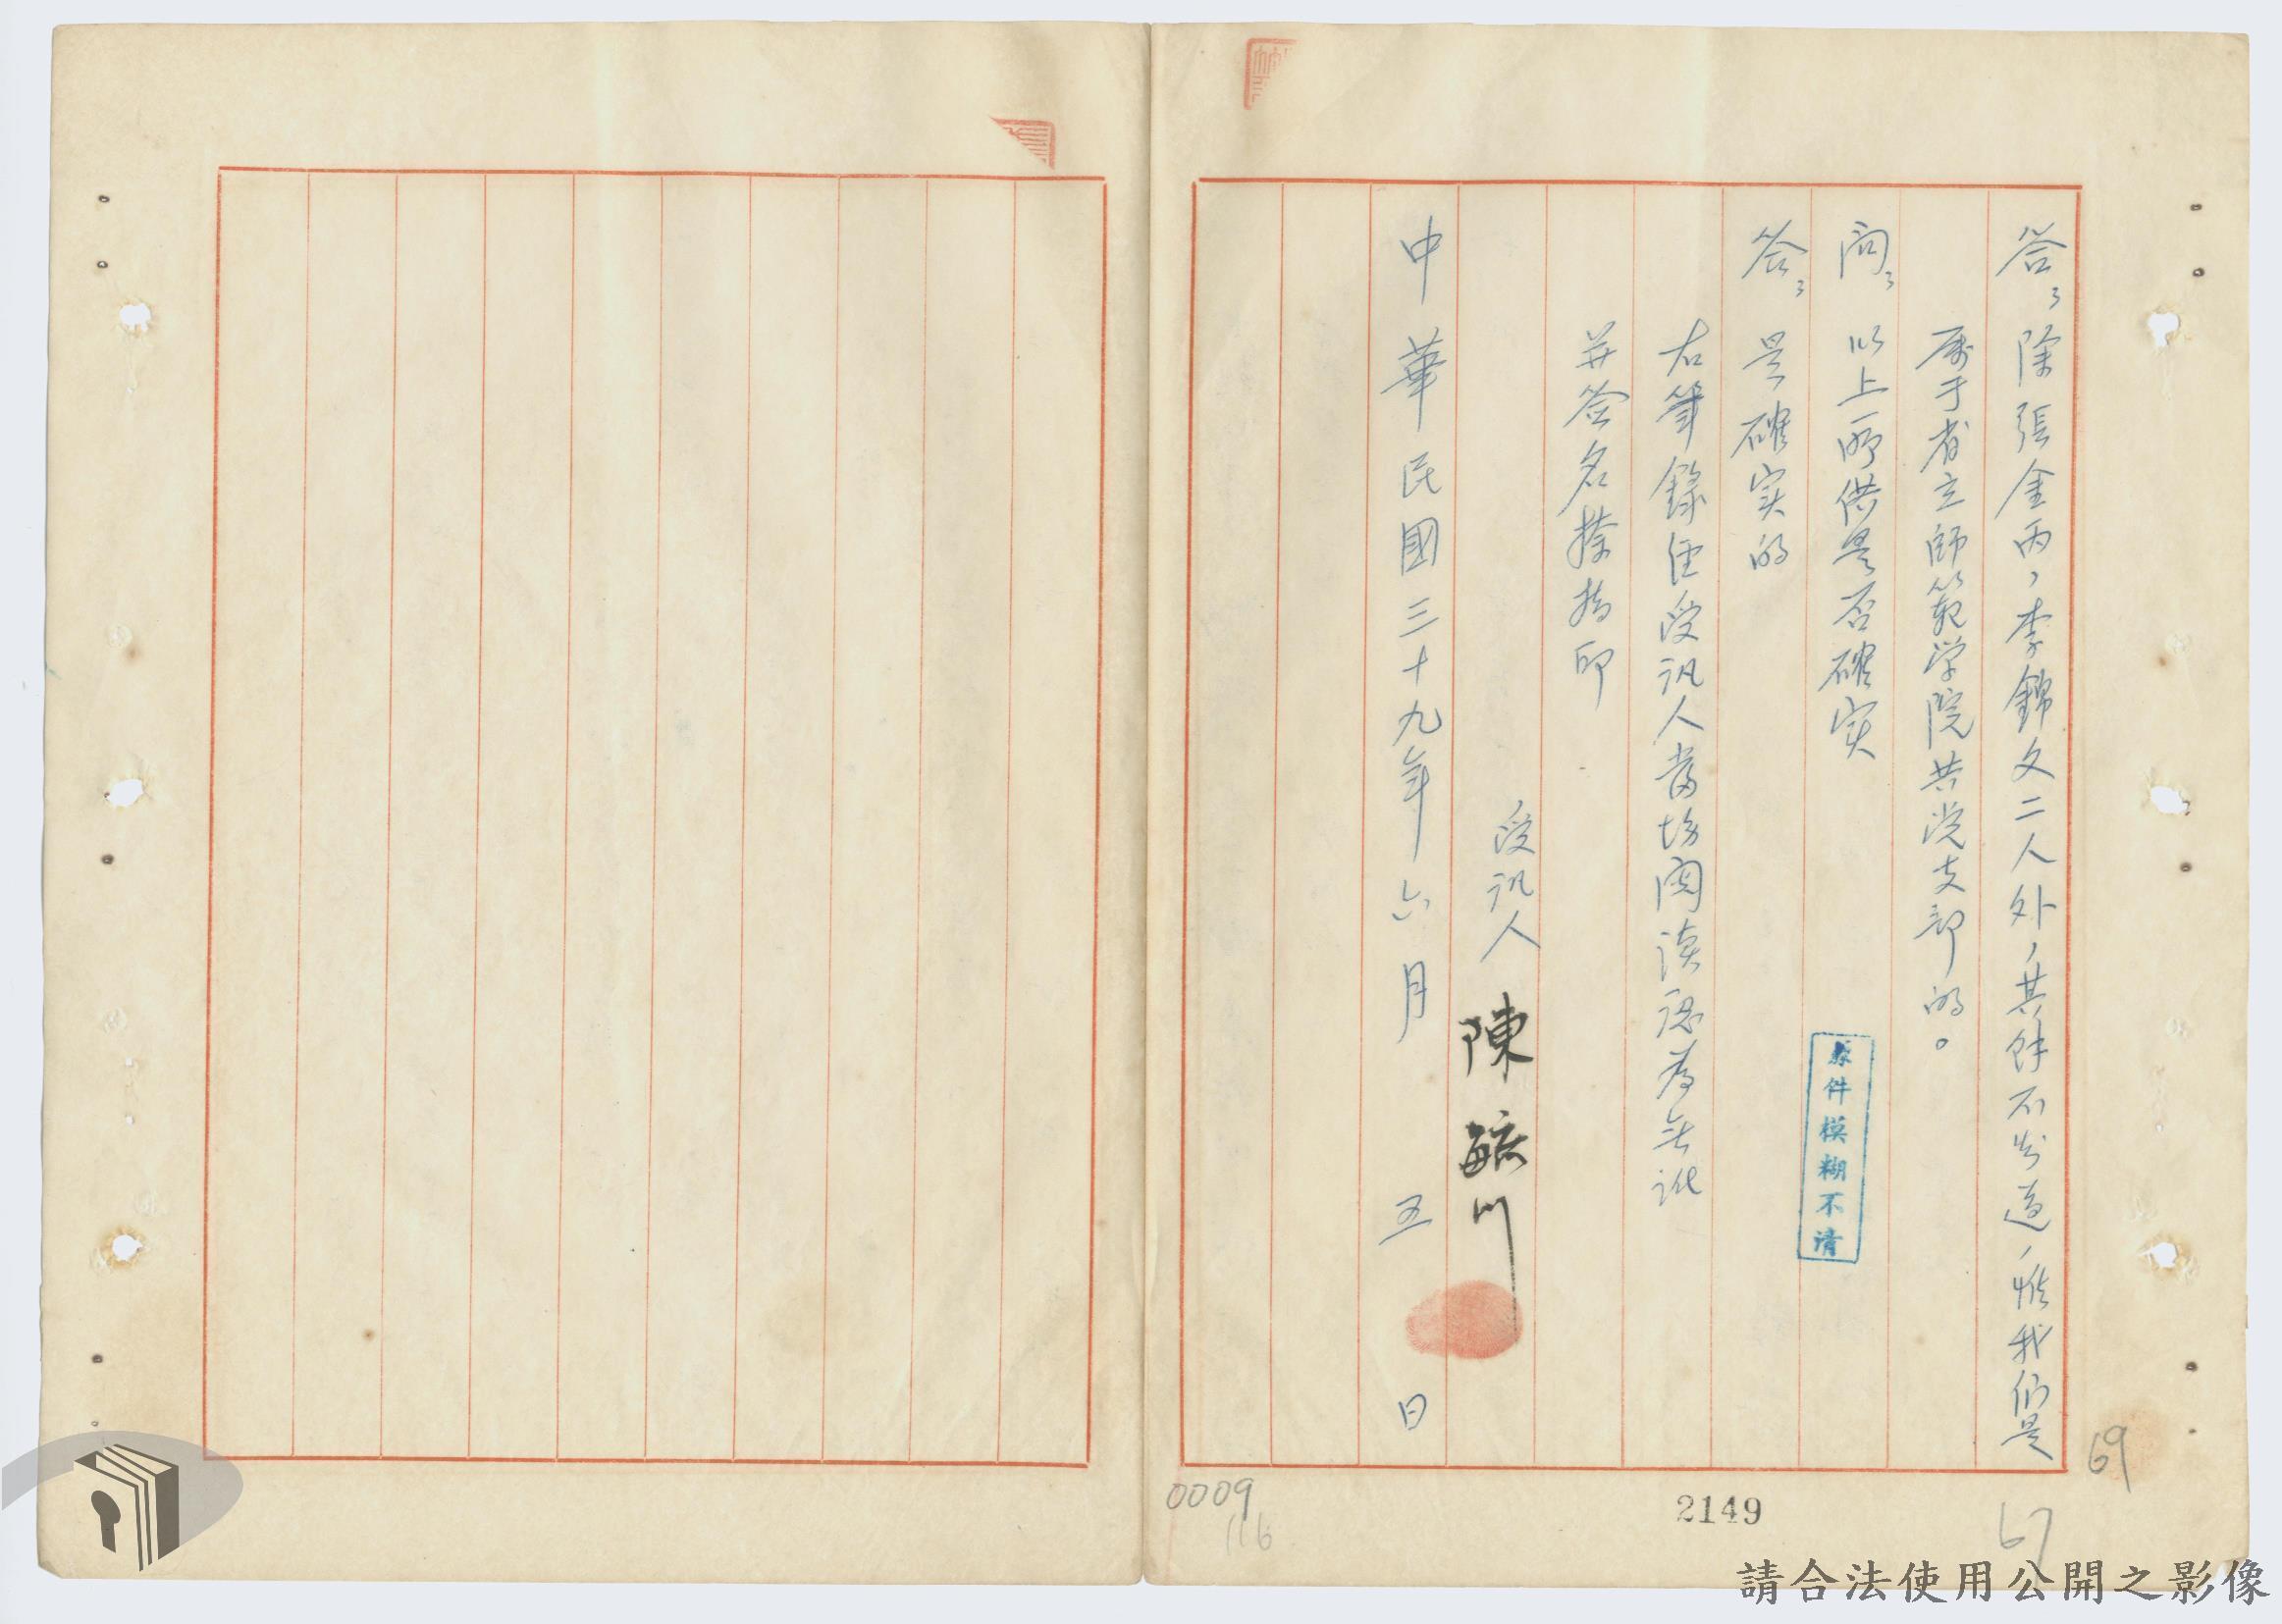 答：除張金丙，李錦文二人外，其餘不知道，惟我们是
属于省立師範学院共党支部的。
問：以上所供是否確实
答：是確实的
右筆錄経受訊人當場閱读認为無訛
并签名捺指印
受訊人 陳毓川
中華民國三十九年六月五日
原件模糊不清
69
0009
116
2149
67
請合法使用公開之影像